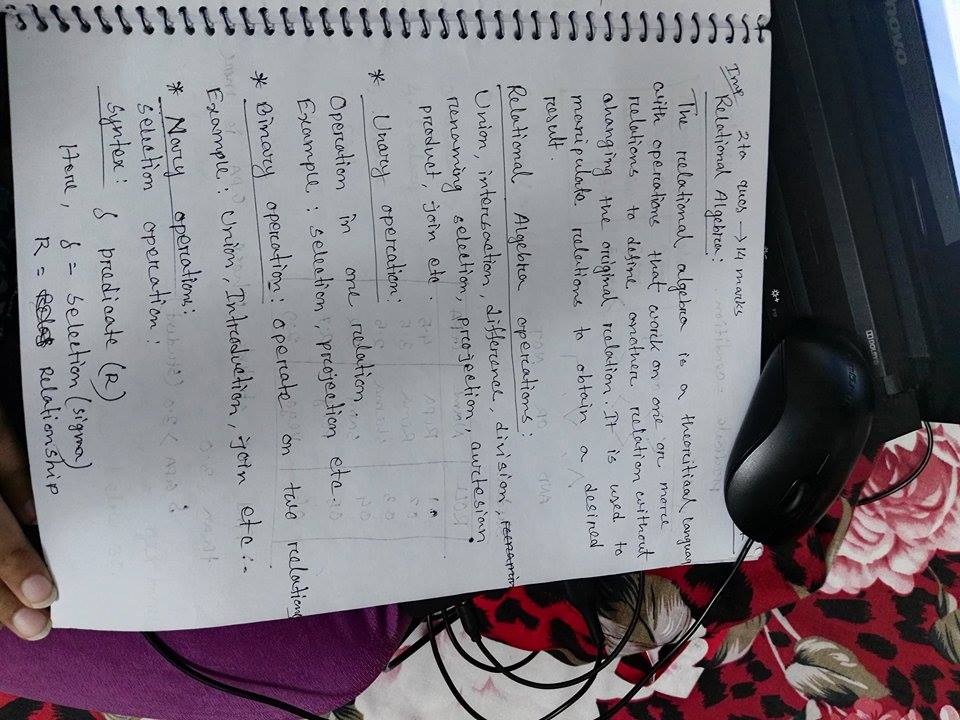 2ta ques → 14 marks
Imp Relational Algebra:
The relational algebra is a theoritical language
with operations that work on one or more
relations to define another relation without
changing the original relation. It is used to
manipulate relations to obtain a desired
result.
Relational Algebra operations:
Union, intersaction, difference, division,
renaming selection, projection, cartesian
product, join etc.
* Unary operation:
Operation in one relation.
Example: selection, projection etc.
* Binary operation: operate on two relations
Example: Union, Introduction, join etc.
* Nary operations:
Selection operation:
Syntex: δ predicate (R)
Here, δ = selection (sigma)
R = Relationship
lenovo
lenovo